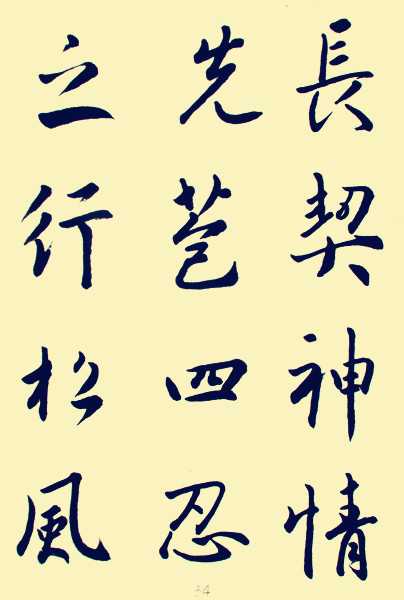 長契神情
先苞四忍
之行松風
34